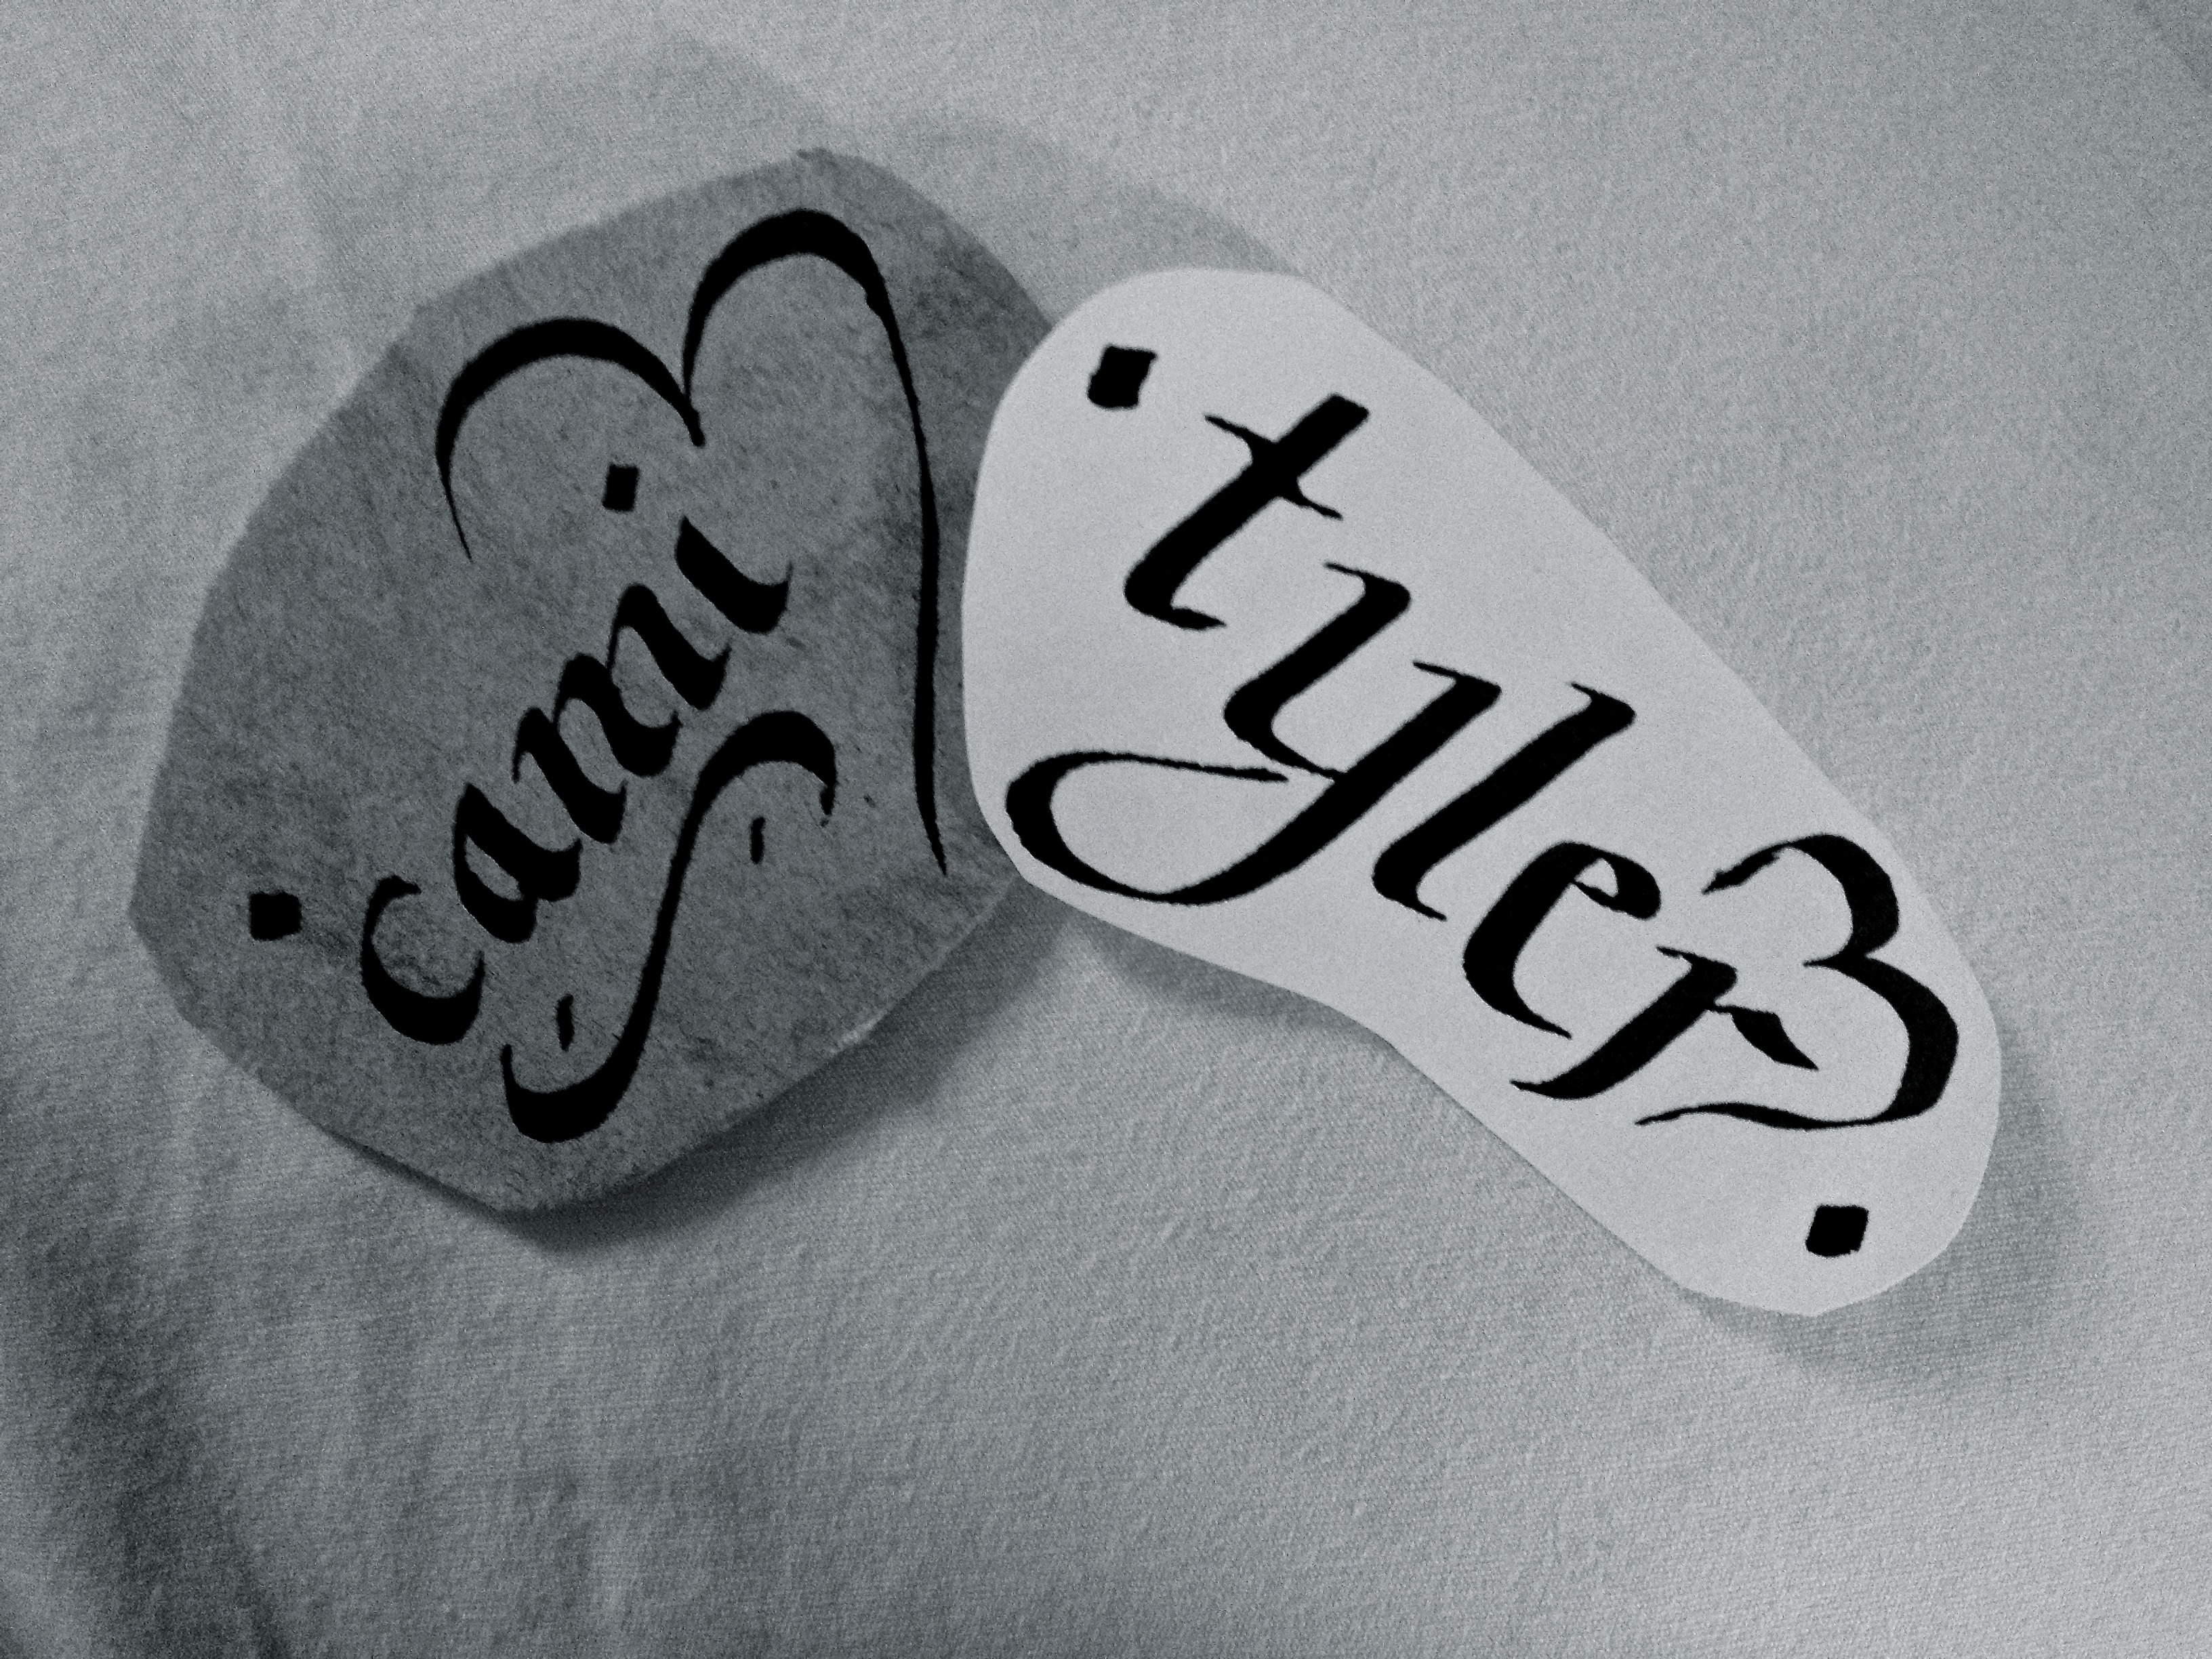 cami
tyler